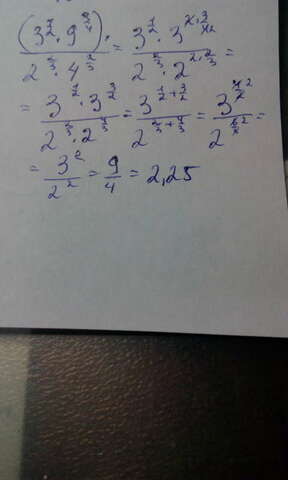 (3^{1/2} · 9^{3/4}) · / 2^{2/3} · 4^{2/3} = 3^{1/2} · 3^{2 · 3/4 2} / 2^{2/3} · 2^{2 · 2/3} =
= 3^{1/2} · 3^{3/2} / 2^{2/3} · 2^{4/3} = 3^{1/2 + 3/2} / 2^{2/3 + 4/3} = 3^{4/2 2} / 2^{6/3 2} =
= 3^2 / 2^2 = 9/4 = 2,25